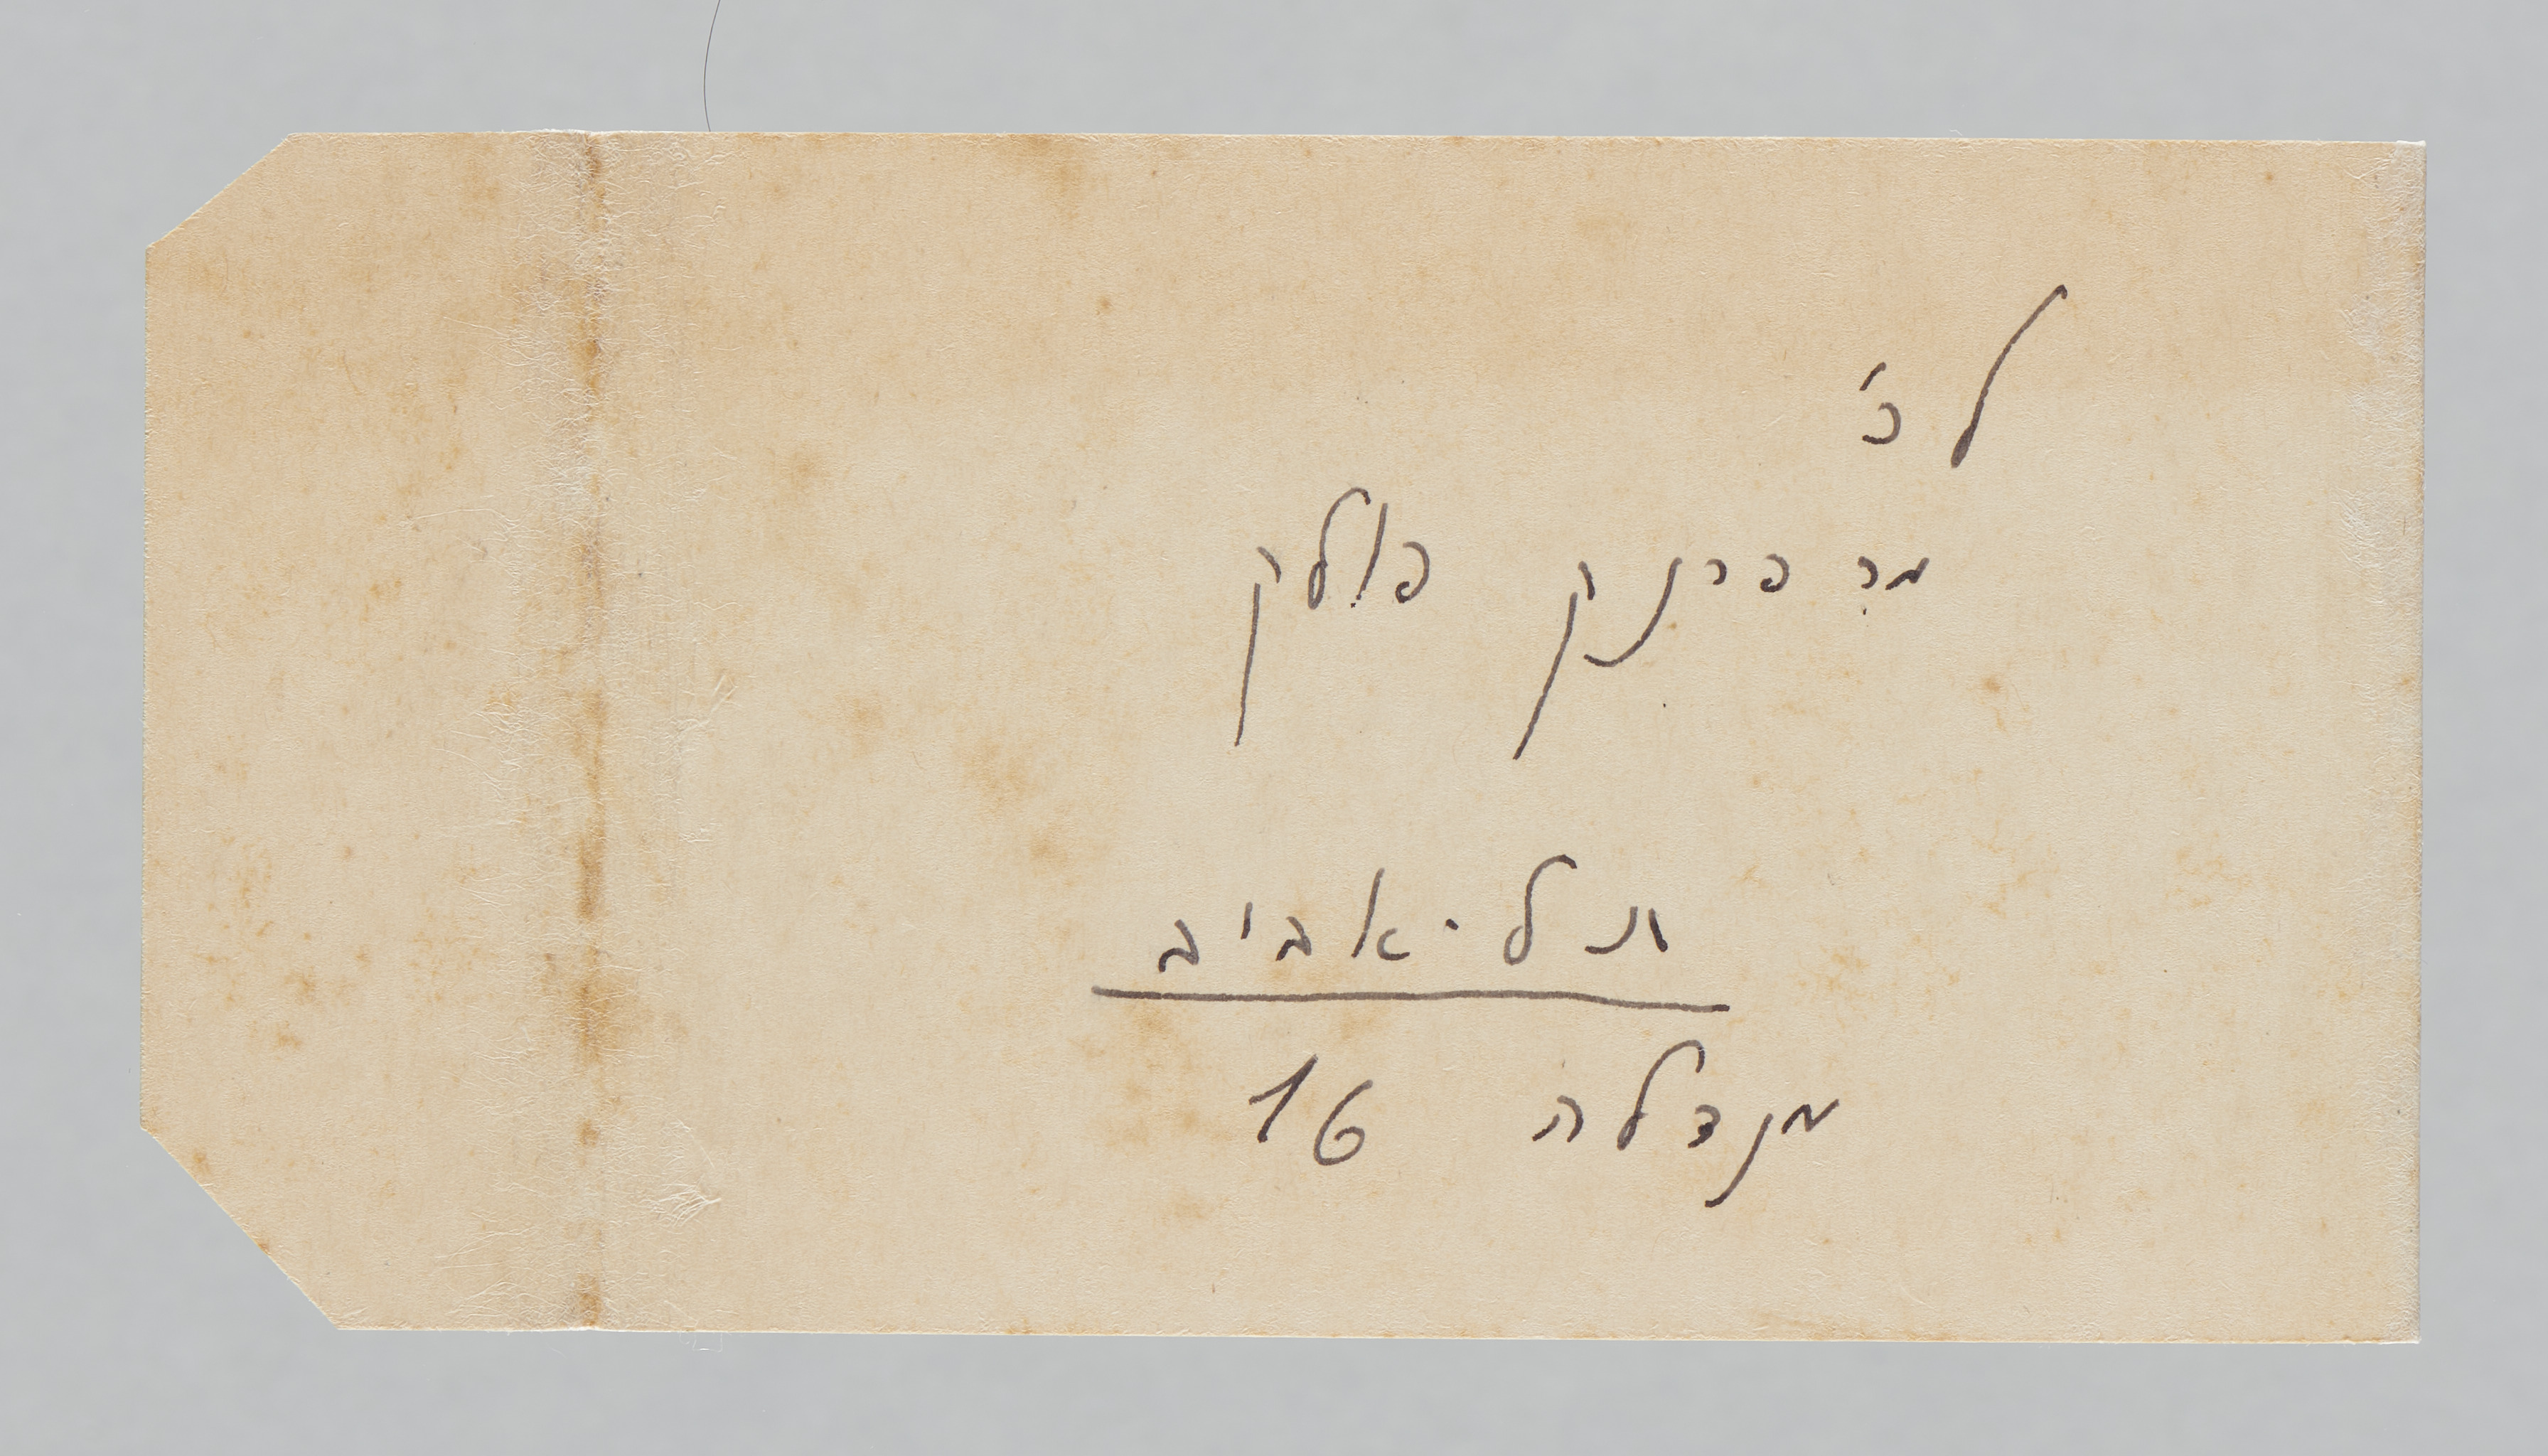 לכ'
מר פרנק פולק
תל-אביב
מנדלה 16